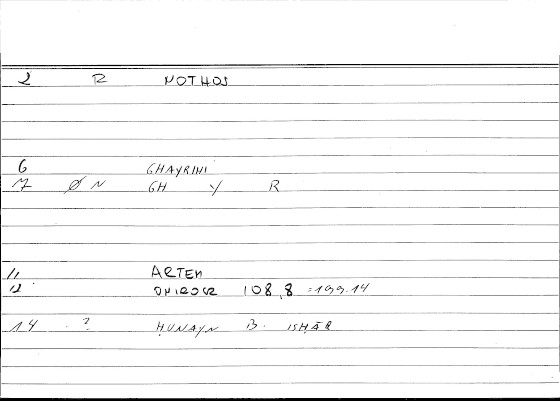 2 R NOTHOS
6 GHAYRIHI
7 ØN GH Y R
11 ARTEM
12 ONIROCR 108,8 =199.14
14 ? ḤUNAYN B. ISḤĀQ